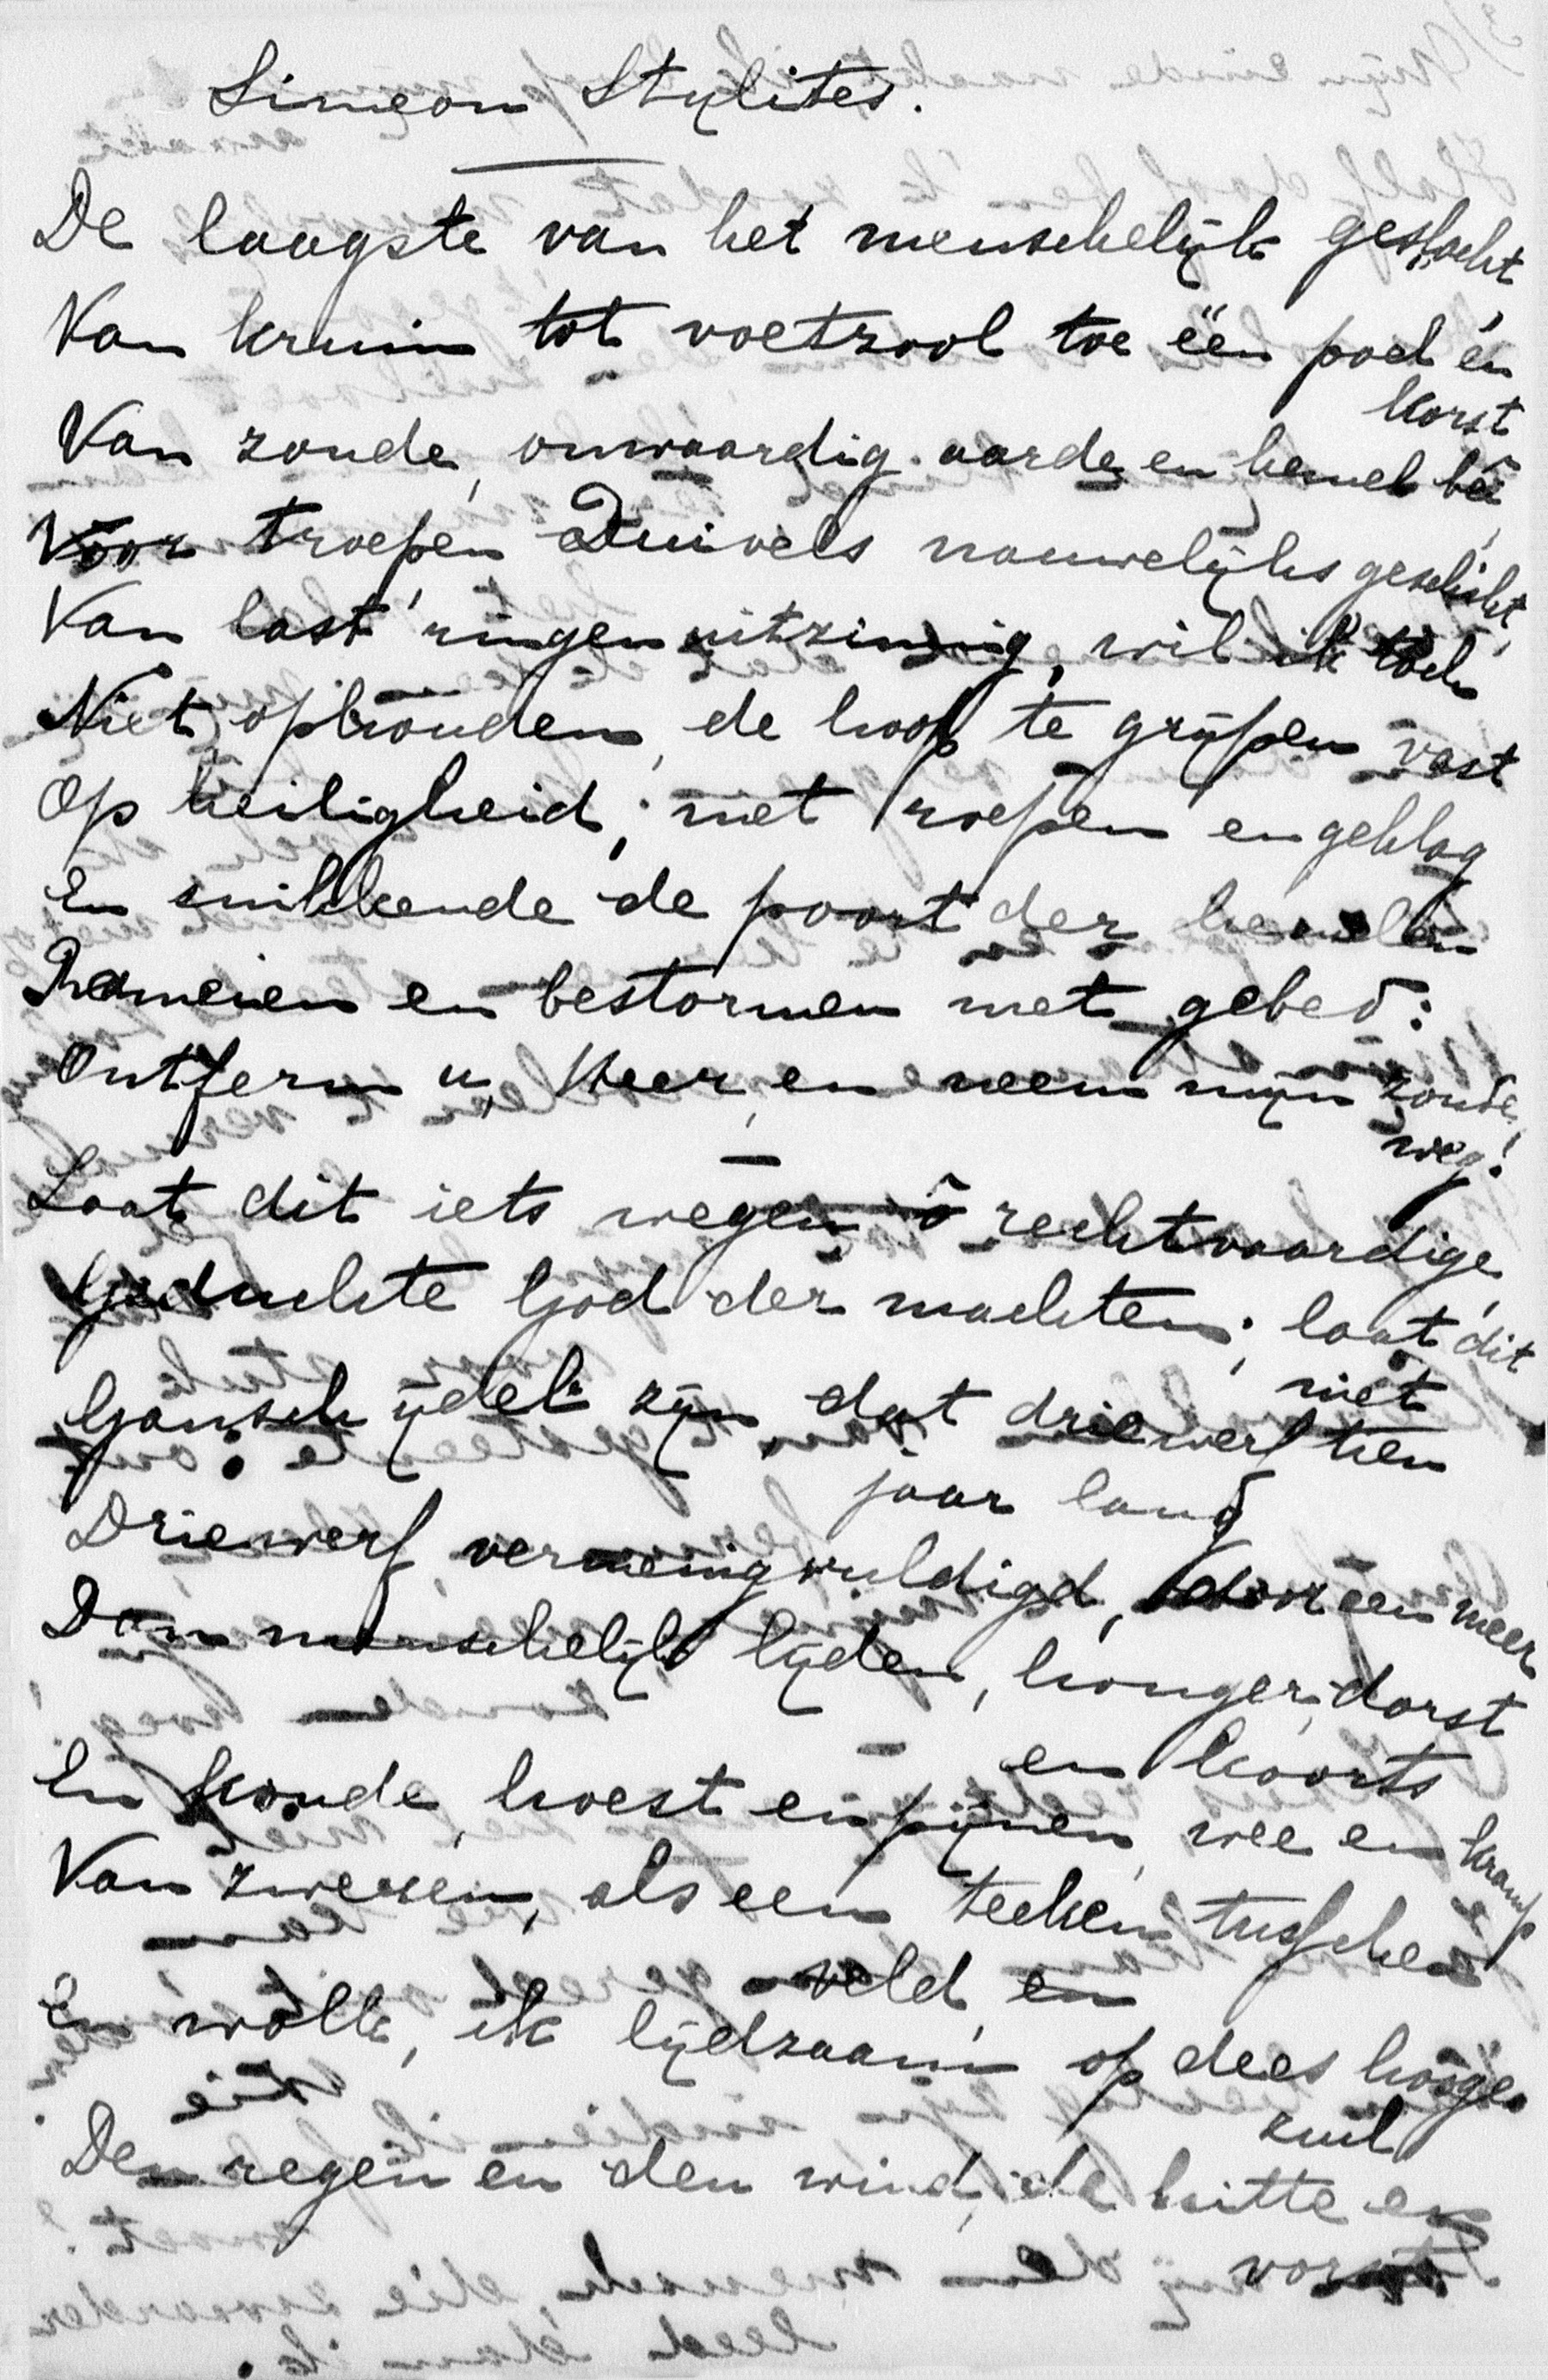 Simeon Stylites.
De laagste van het menschelijk geslacht
Van kruin tot voetzool toe één poel én
korst
Van zonde, onwaardig aarde en hemel bei,
Voor troepen Duivels nauwelijks geschikt,
Van last'ringen uitzinnig, wil ik toch
Niet ophouden, de hoop te grijpen vast
Op heiligheid; met roepen en geklag
En snikkende de poort der hemelen
Rameien en bestormen met gebed:
Ontferm u, Heer, en neem mijn zonde
weg!
Laat dit iets wegen, ô rechtvaardige,
Geduchte God der machten; laat dit
niet
Gansch ijdel zijn, dat driewerf tien
jaar lang
Driewerf vermenigvuldigd, door een meer
Dan menschelijk lijden, honger, dorst
en koorts
En koude, hoest en pijnen, wee en kramp
Van zweren, als een teeken tusschen
veld en
En wolk, ik lijdzaam op dees hooge
zuil
Den regen en den wind, de hitte en
vorst